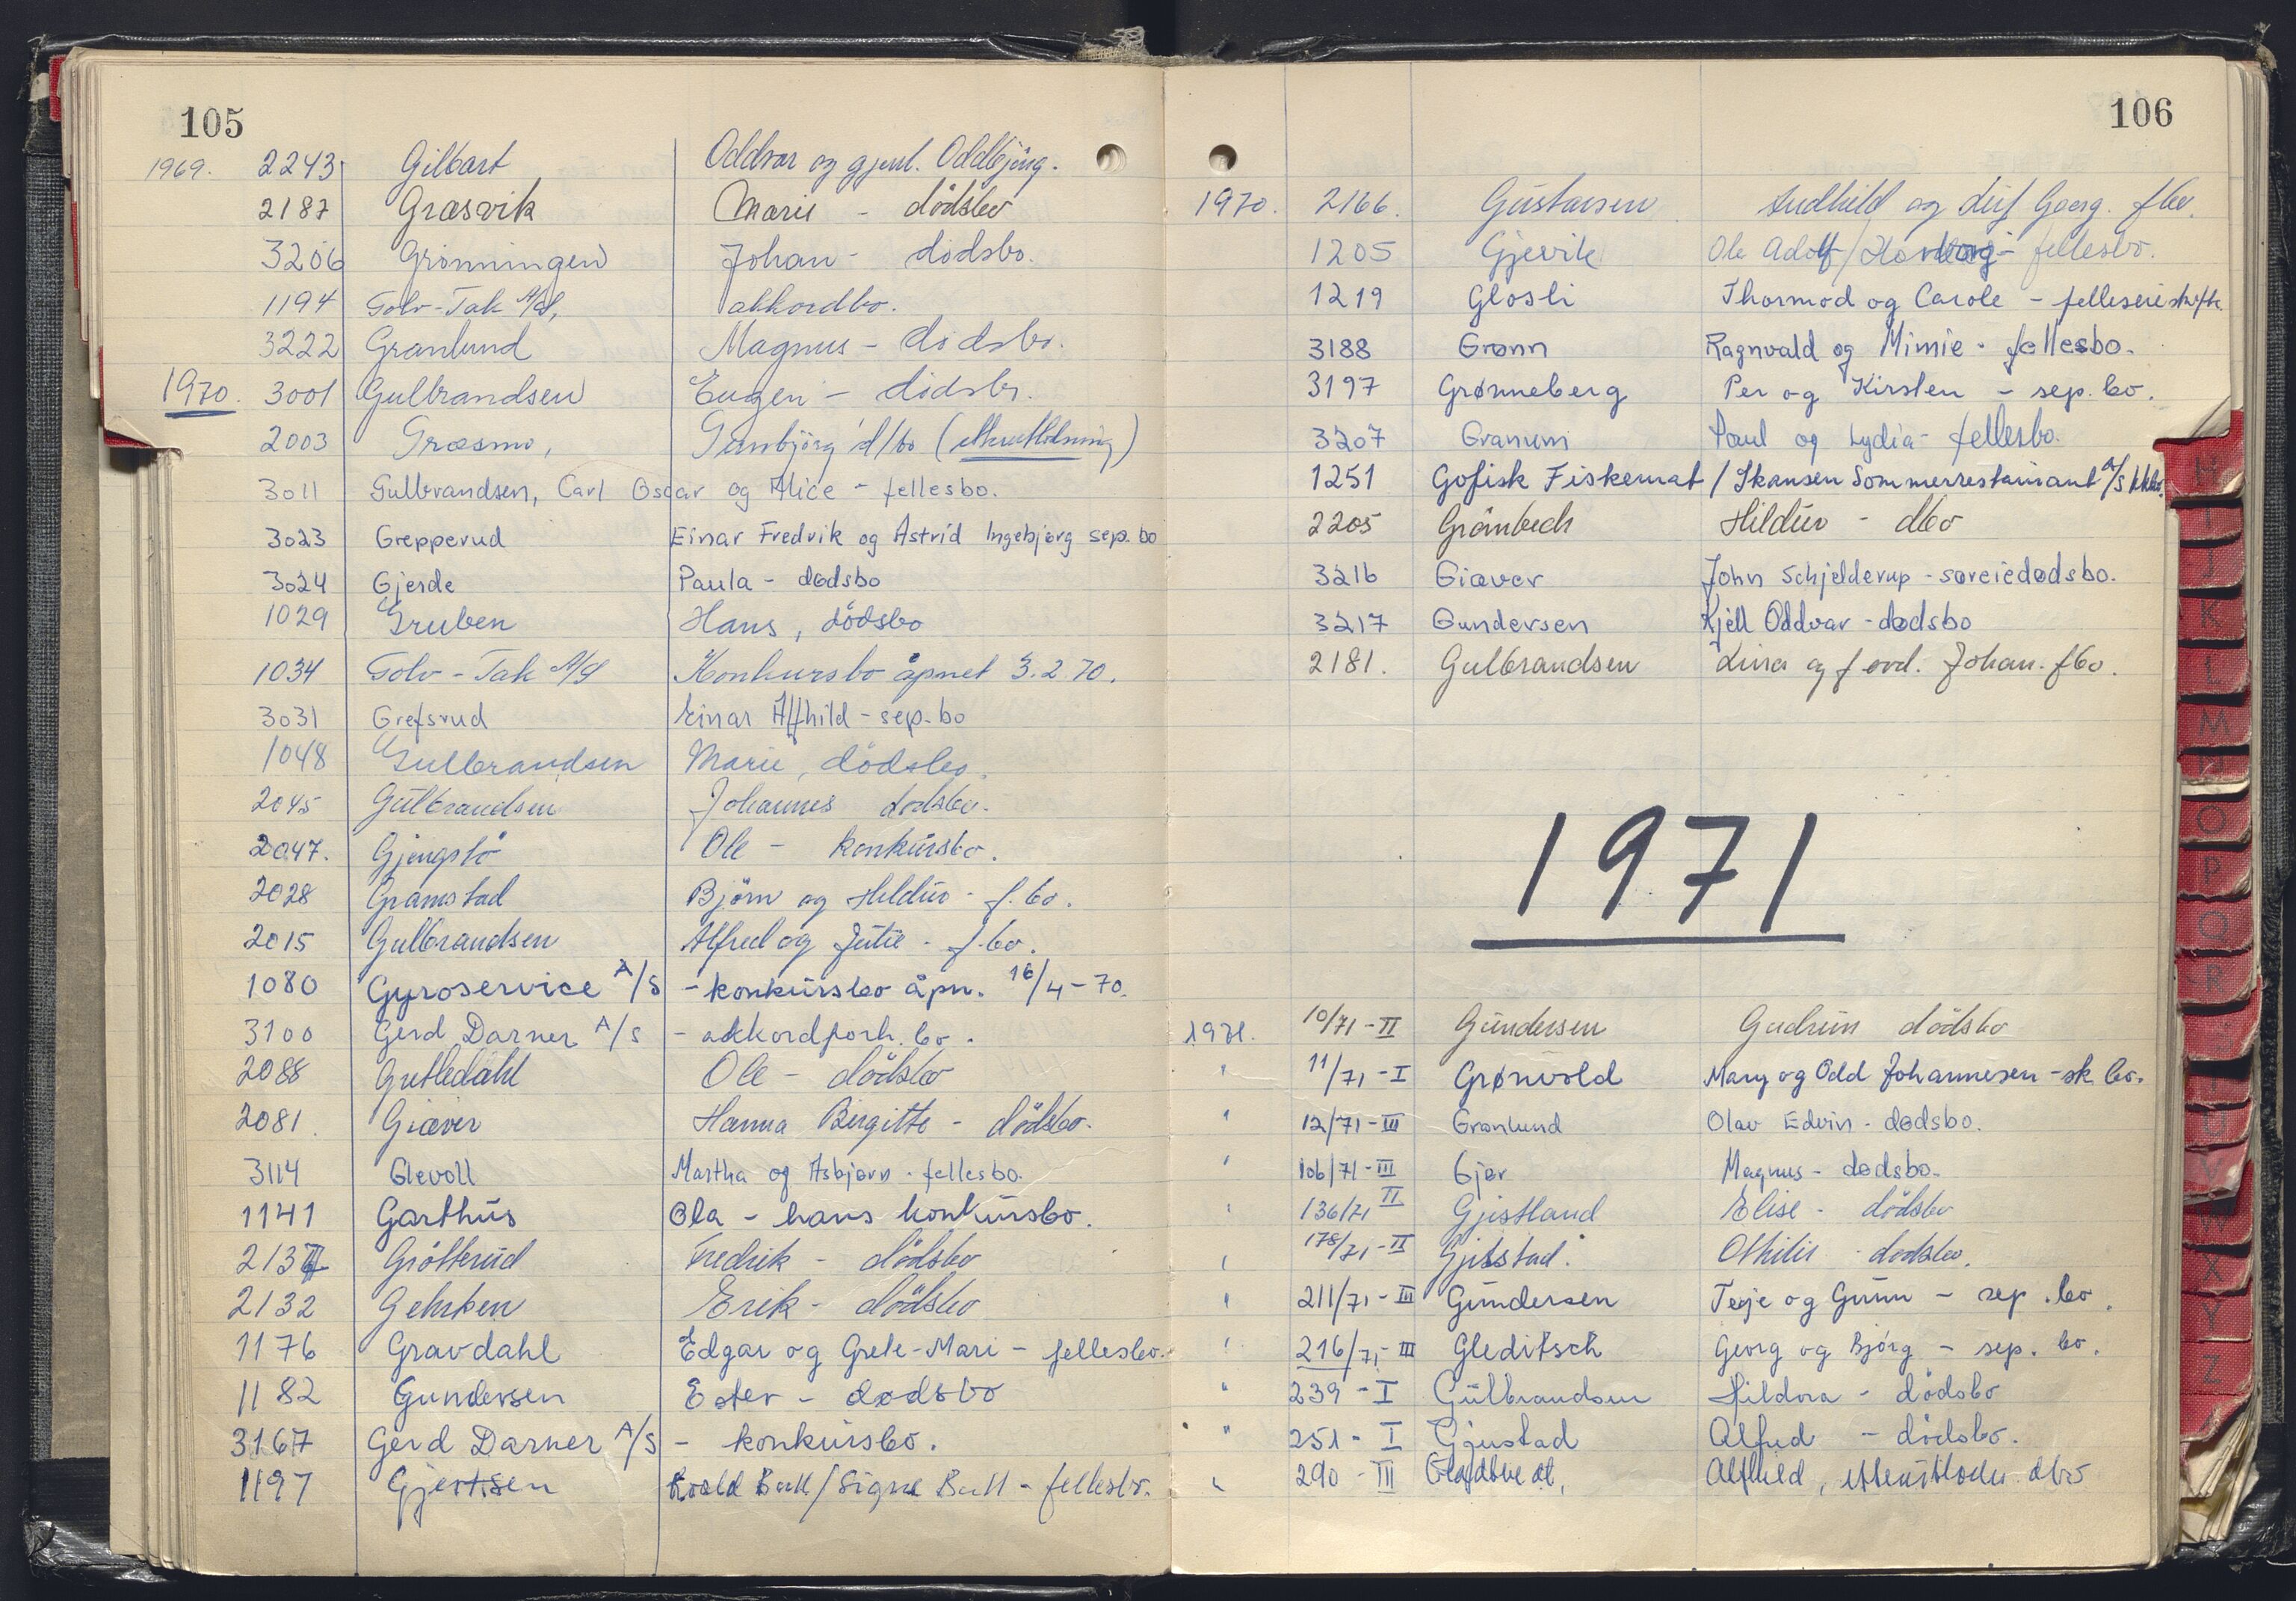 105
1969. 2243 Gilbart Oddvar og gjenl. Oddbjörg.
2187 Græsvik Marie - dödsbo
3206 Grönningen Johan - dödsbo.
1194 Golv-Tak A/S, akkordbo.
3222 Granlund Magnus - dödsbo.
1970. 3001 Gulbrandsen Eugen - dödsbo.
2003 Græsmo, Gunbjörg d/bo (etterutlodning)
3011 Gulbrandsen, Carl Oscar og Alice - fellesbo.
3023 Grepperud Einar Fredrik og Astrid Ingebjørg sep. bo
3024 Gjerde Paula - dødsbo
1029 Gruben Hans, dödsbo
1034 Golv-Tak A/S Konkursbo åpnet 3.2.70.
3031 Grefsrud Einar Affhild - sep. bo
1048 Gulbrandsen Marie, dödsbo.
2045 Gulbrandsen Johannes dødsbo.
2047. Gjengstö Ole - konkursbo.
2028 Gramstad Björn og Hildur - f. bo.
2015 Gulbrandsen Alfred og Jutie - f. bo.
1080 Gyroservice A/S - konkursbo åpn. 16/4-70.
3100 Gerd Darner A/S - akkordforh. bo.
2088 Gutledahl Ole - dödsbo
2081. Giæver Hanna Birgitte - dödsbo.
3114 Glevoll Martha og Asbjørn - fellesbo.
1141 Garthus Ola - hans konkursbo.
Grötterud Fredrik - dödsbo
2132 Gehrken Erik - dödsbo
1176 Gravdahl Edgar og Grete-Mari - fellesbo.
1182 Gundersen Ester - dødsbo
3167 Gerd Darner A/S - konkursbo.
1197 Gjertsen Roald Bull / Signe Bull - fellesbo.
106
1970. 2166. Gustavsen og Leif Georg. fbo.
1205 Gjevik Ole Adolf / fellesbo.
1219 Glosli Thormod og Carole - felleseieskifte.
3188 Grønn Ragnvald og Mimie - fellesbo.
3197 Grønneberg Per og Kirsten - sep. bo.
3207 Granum Paul og Lydia - fellesbo.
1251 Gofisk Fiskemat / Skansen Sommerrestaurant A/S kkbo.
2205 Grönbech Hildur - dbo
3216 Giæver John Schjelderup - særeiedødsbo.
3217 Gundersen Kjell Oddvar - dødsbo
2181. Gulbrandsen Lina og forv. Johan. fbo.
1971
1971. 10/71-II Gundersen Gudrun dödsbo
" 11/71-I Grønvold Mary og Odd Johannesen - sk. bo.
" 12/71-III Granlund Olav Edvin - dødsbo.
" 106/71-III Gjør Magnus - dødsbo.
" 136/71 II Gjestland Elise - dödsbo
" 178/71-II Othilie - dødsbo.
" 211/71-III Gundersen Terje og Gunn - sep. bo.
" 216/71-III Gleditsch Georg og Bjørg - sep. bo.
" 239-I Gulbrandsen Hildora - dödsbo
" 251-I Gjerstad Alfred - dödsbo.
" 290-III Alfhild, etterutlodn. dbo
H
I
J
K
L
M
N
O
P
Q
R
T
U
V
W
X
Y
Z